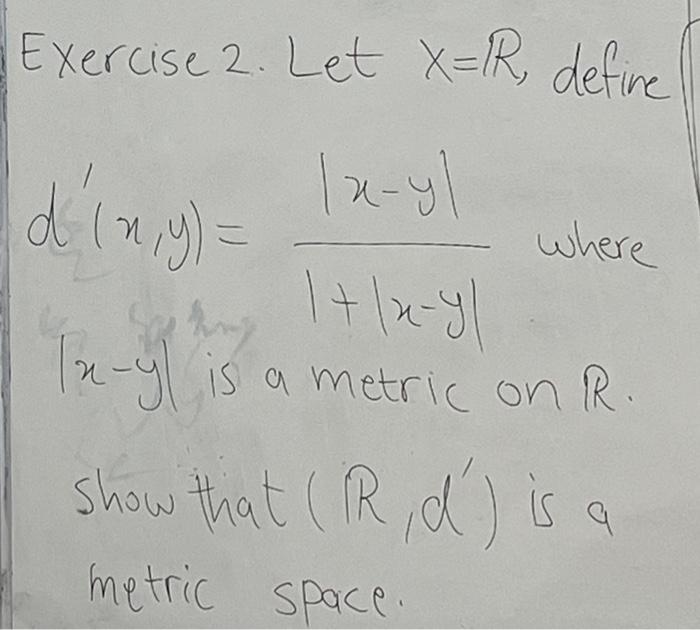 Exercise 2. Let X=ℝ, define
d'(x,y) = |x-y| / 1+|x-y| where
|x-y| is a metric on ℝ.
show that (ℝ,d') is a
metric space.